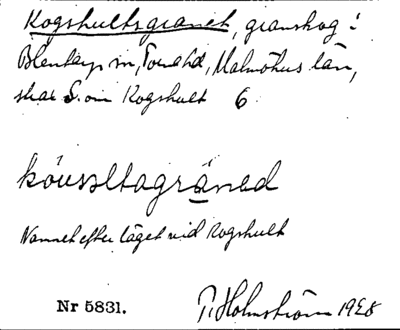 Kogshultsgranet, granskog i
Blentarp sn, Torna hd, Malmöhus län,
strax S. om Kogshult 6
kóusltagräned
Namnet efter läget vid Kogshult
Nr 5831. P. Holmström 1928